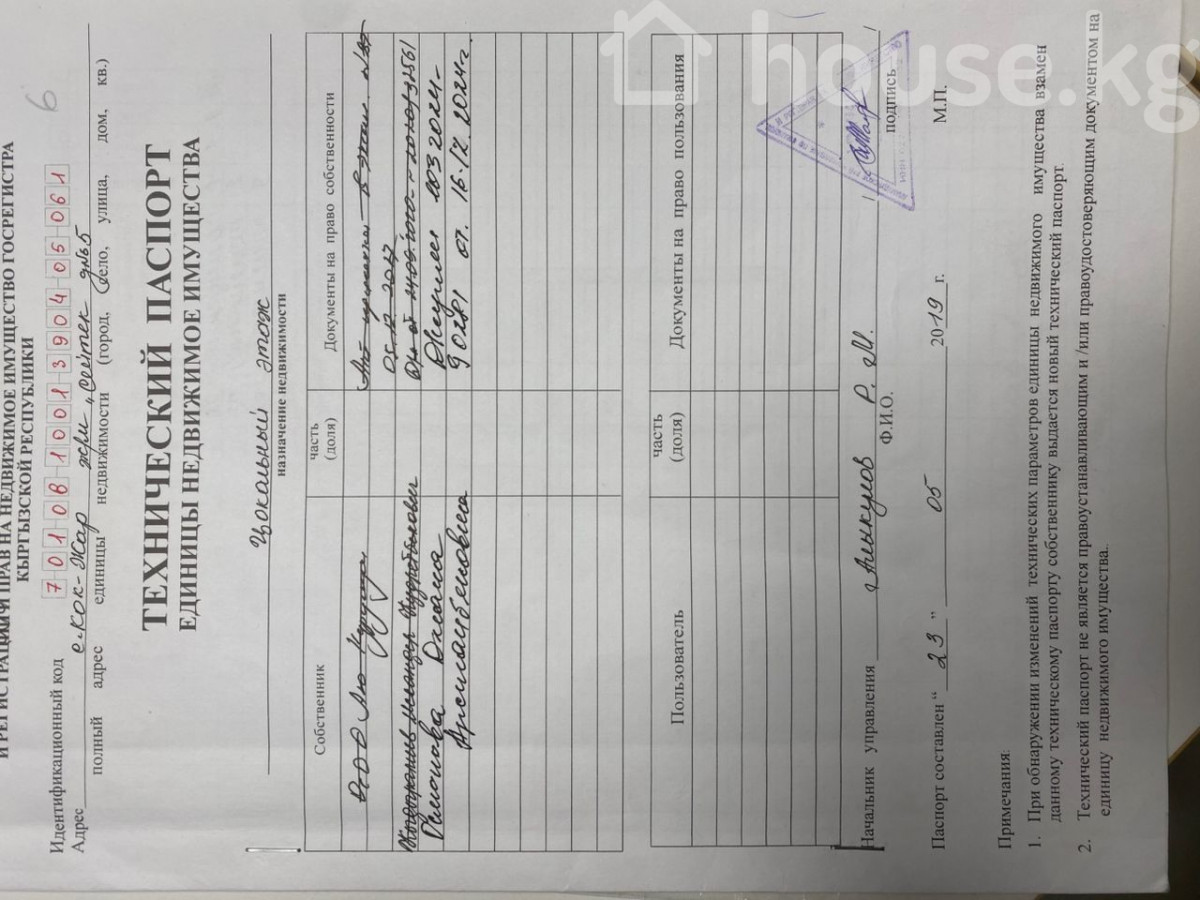 И РЕГИСТРАЦИИ ПРАВ НА НЕДВИЖИМОЕ ИМУЩЕСТВО ГОСРЕГИСТРА
КЫРГЫЗСКОЙ РЕСПУБЛИКИ
6
Идентификационный код 7 01 08 1001 3904 05 061
Адрес с.Кок-Жар жрм "Сейтек" дм65
полный адрес единицы недвижимости (город, село, улица, дом, кв.)
ТЕХНИЧЕСКИЙ ПАСПОРТ
ЕДИНИЦЫ НЕДВИЖИМОЕ ИМУЩЕСТВА
Цокальный этаж
назначение недвижимости
Собственник часть (доля) Документы на право собственности
ОсОО
05.12.2017
Джана Договор 1032024-
Арсланбековна 90281 от. 16.12.2024г.
Пользователь часть (доля) Документы на право пользования
Начальник управления Р. М. / /
Ф.И.О. подпись
Паспорт составлен “ 23 ” 05 2019 г. М.П.
Примечания:
1. При обнаружении изменений технических параметров единицы недвижимого имущества взамен
данному техническому паспорту собственнику выдается новый технический паспорт.
2. Технический паспорт не является правоустанавливающим и /или правоудостоверяющим документом на
единицу недвижимого имущества.
house.kg